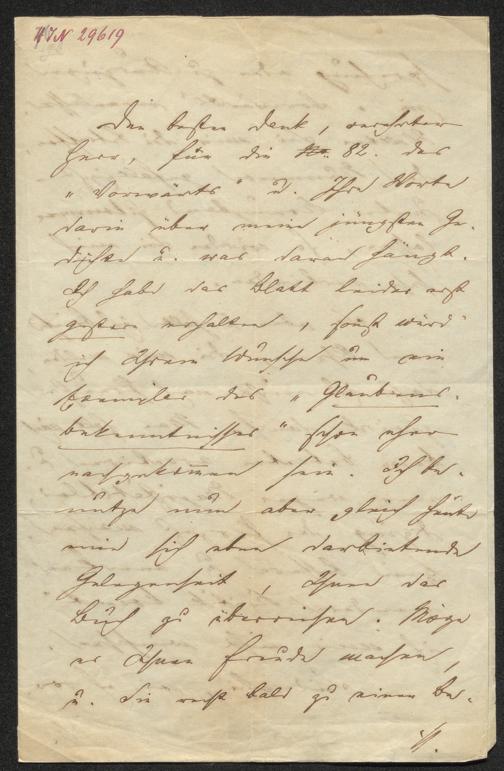 HIN 29619
Den besten Dank, verehrter
Herr, für die No. 82. des
„Vorwärts" u. Ihre Worte
darin über meine jüngsten Ge-
dichte u. was daran hängt.
Ich habe das Blatt leider erst
gestern erhalten, sonst würd'
ich Ihrem Wunsche um ein
Exemplar des „Glaubens-
bekenntnisses" schon eher
nachgekommen sein. Ich be-
nutze nun aber gleich heute
eine sich eben darbietende
Gelegenheit, Ihnen das
Buch zu überreichen. Möge
es Ihnen Freude machen,
u. Sie recht bald zu einer Be-